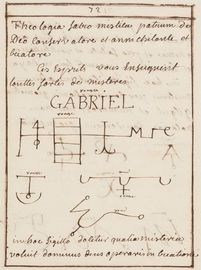 72
Theologia sabeo mistica patrium de
Deo Conservatore et annichilante et
Creatore
Ces Esprits vous Enseigneront
touttes sortes de misteres
rouge
GABRIEL
rouge
in hoc sigillo docetur qualia misteria
voluit dominus deus operari in Creatione